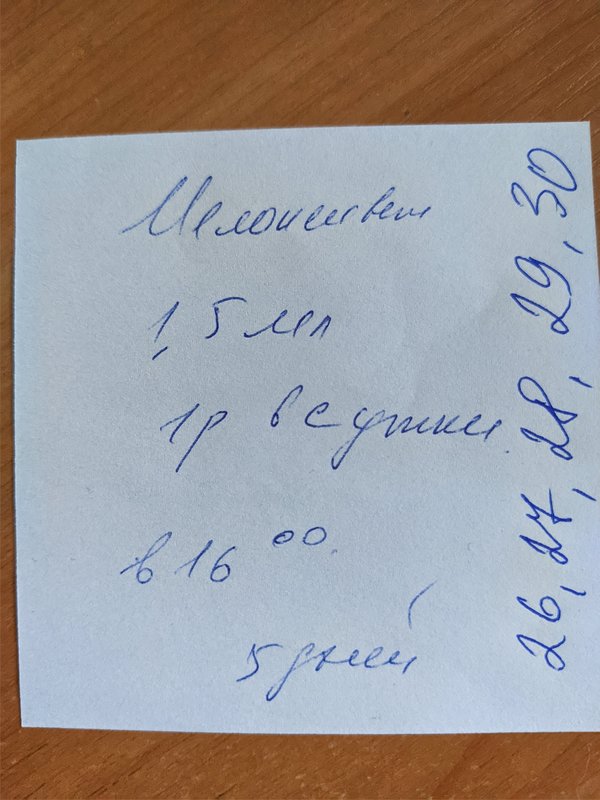 Мелоксивет
1,5 мл
1р в сутки.
в 16 00.
5 дней
26, 27, 28, 29, 30